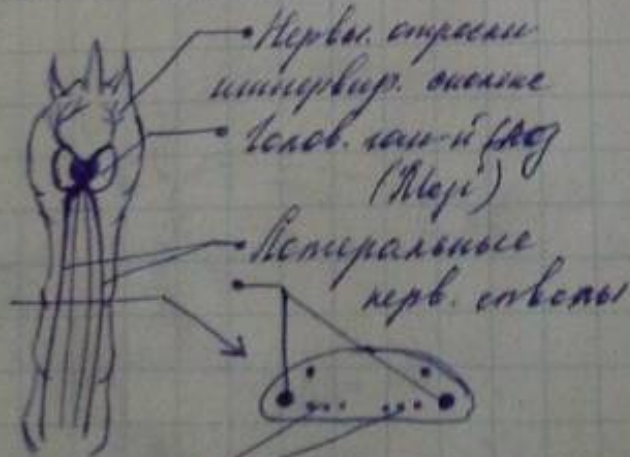 Нервн. отростки
иннервир. сколекс
Голов. ган-й
(Мозг)
Латеральные
нерв. стволы